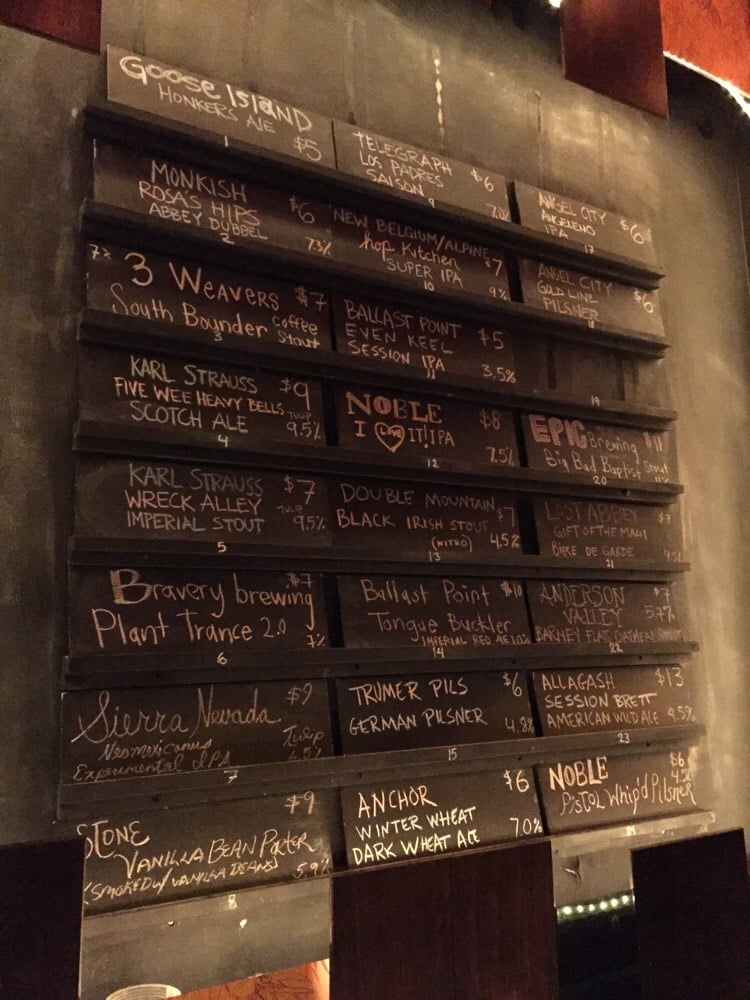 GOOSE ISLAND
HONKERS ALE $5
1
MONKISH
ROSA'S HIPS $6
ABBEY DUBBEL 7.3%
2
7%
3 WEAVERS $7
South Bounder Coffee
Stout
3
KARL STRAUSS $9
FIVE WEE HEAVY BELLS TULIP
SCOTCH ALE 9.5%
4
KARL STRAUSS $7
WRECK ALLEY TULIP
IMPERIAL STOUT 9.5%
5
Bravery brewing $7
Plant Trance 2.0 7%
6
Sierra Nevada $9
Neomexicanus Tulip
Experimental IPA
7
STONE $9
VANILLA BEAN PORTER
(SMOKED W/ VANILLA BEANS) 5.9%
8
TELEGRAPH
LOS PADRES $6
SAISON
9
NEW BELGIUM/ALPINE
hop Kitchen $7
SUPER IPA 9%
10
BALLAST POINT
EVEN KEEL $5
SESSION IPA 3.5%
11
NOBLE $8
I LOVE IT! IPA 7.5%
12
DOUBLE MOUNTAIN $7
BLACK IRISH STOUT
(NITRO) 4.5%
13
Ballast Point $10
Tongue Buckler
IMPERIAL RED ALE
14
TRUMER PILS $6
GERMAN PILSNER 4.9%
15
ANCHOR $6
WINTER WHEAT
DARK WHEAT ALE 7.0%
ANGEL CITY $6
ANGELENO
IPA
17
ANGEL CITY
GOLD LINE $6
PILSNER
18
19
EPIC Brewing $11
Big Bad Baptist Stout
20
LOST ABBEY $7
GIFT OF THE MAGI
BIERE DE GARDE 9.5%
21
ANDERSON $7
VALLEY 5.7%
BARNEY FLATS OATMEAL
22
ALLAGASH $13
SESSION BRETT
AMERICAN WILD ALE 4.5%
23
NOBLE $6
Pistol Whip'd Pilsner